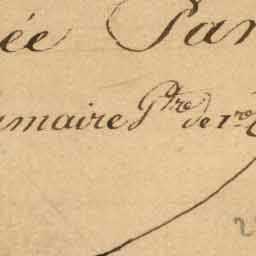 ée Par
maire Gtre de 1re
2